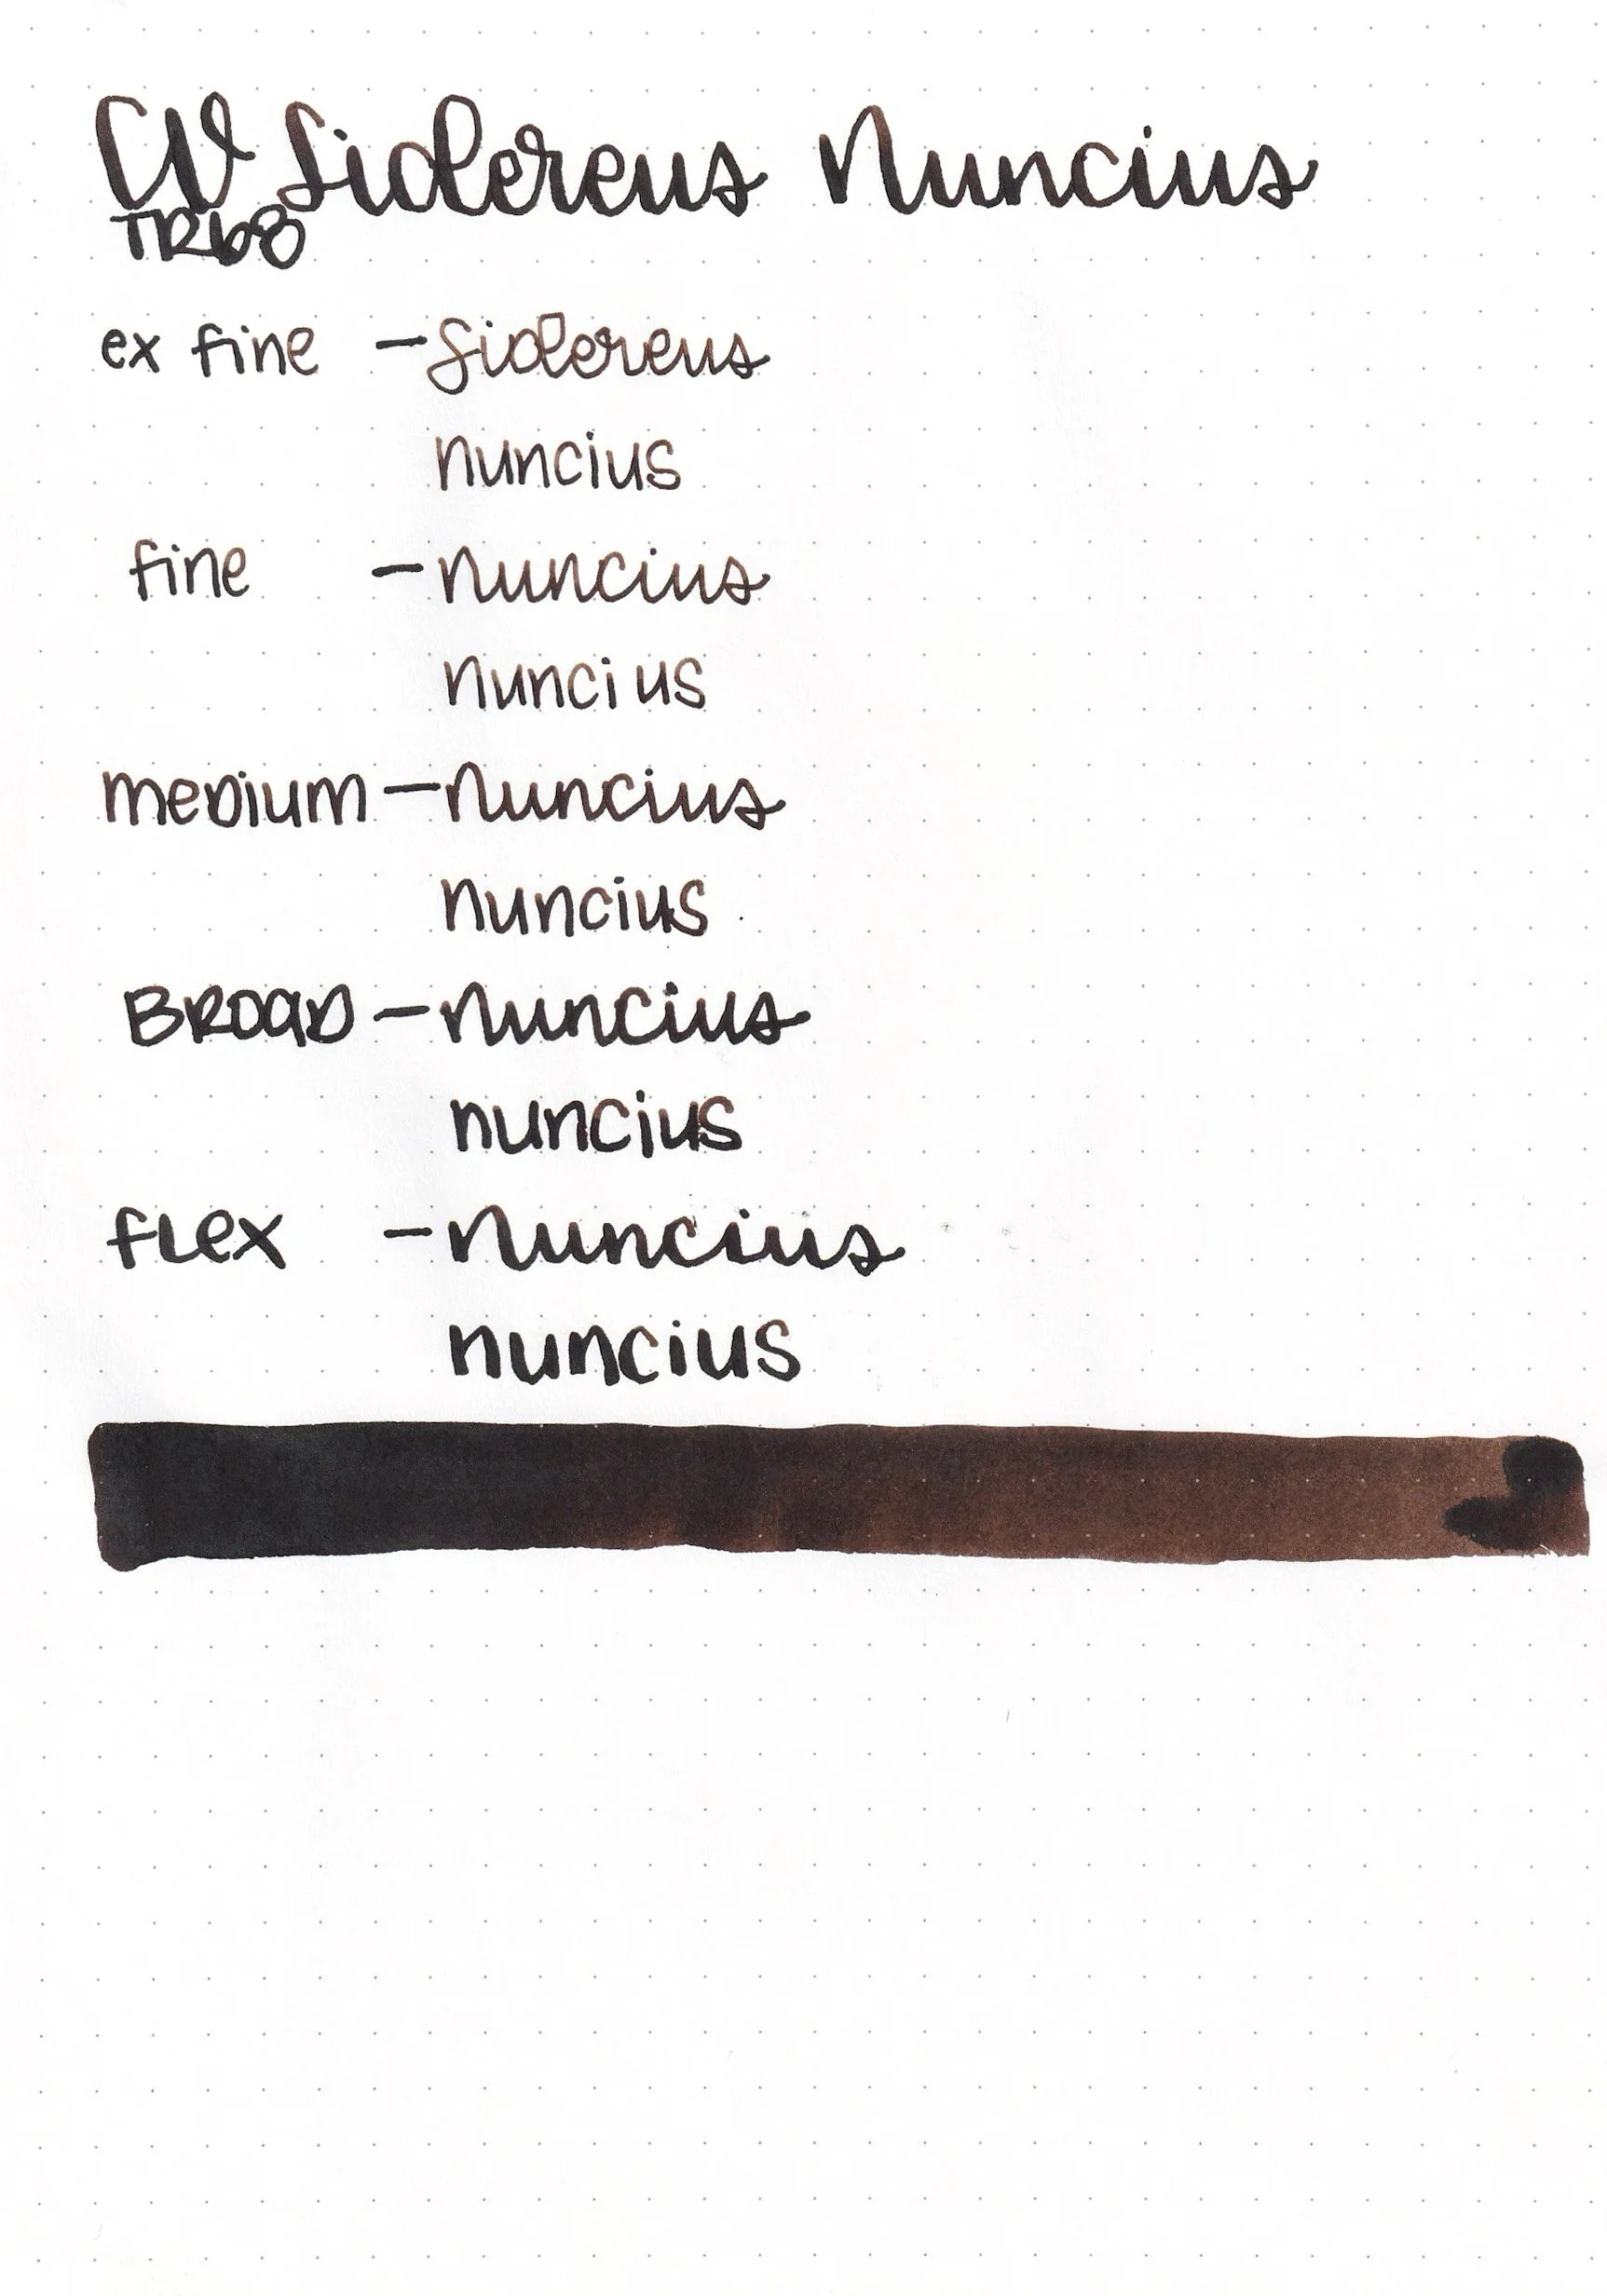 CW Sidereus Nuncius
TR68
ex fine - Sidereus
nuncius
fine - nuncius
nuncius
medium - nuncius
nuncius
BROAD - nuncius
nuncius
flex - nuncius
nuncius